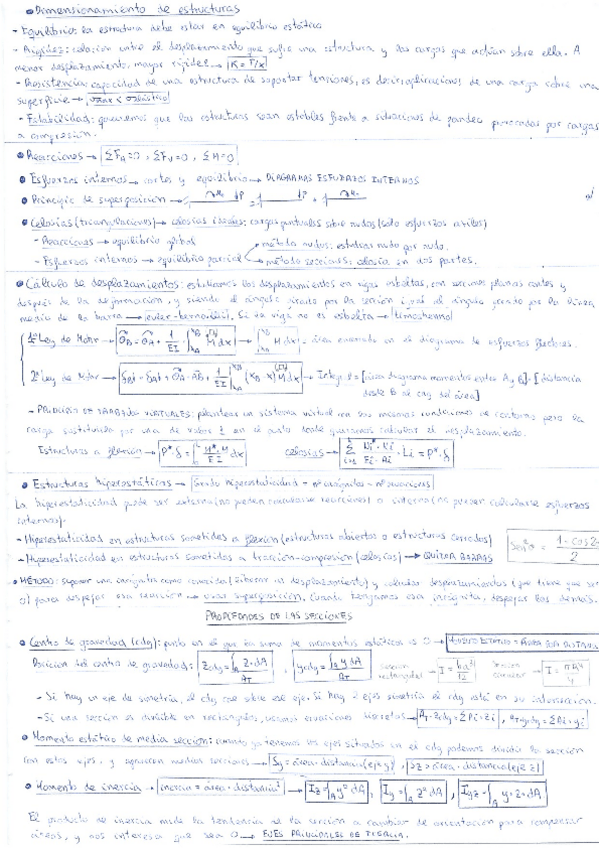 • Dimensionamiento de estructuras
- Equilibrio: la estructura debe estar en equilibrio estático
- Rigidez: relación entre el desplazamiento que sufre una estructura y las cargas que actúan sobre ella. A
menor desplazamiento, mayor rigidez → K = F/x
- Resistencia: capacidad de una estructura de soportar tensiones, es decir, aplicaciones de una carga sobre una
superficie →
- Estabilidad: queremos que las estructuras sean estables frente a situaciones de pandeo provocadas por cargas
a compresión.
• Reacciones → ΣFH=0, ΣFV=0, ΣM=0
• Esfuerzos internos → cortes y equilibrio → DIAGRAMAS ESFUERZOS INTERNOS
• Principio de superposición →
• Celosías (triangulaciones) → celosías ideales: cargas puntuales sobre nudos (solo esfuerzos axiles)
- Reacciones → equilibrio global
→ método nudos: estudiar nudo por nudo.
- Esfuerzos internos → equilibrio parcial
→ método secciones: celosía en dos partes.
• Cálculo de desplazamientos: estudiamos los desplazamientos en vigas esbeltas, con secciones planas antes y
después de la deformación, y siendo el ángulo girado por la sección igual al ángulo girado por la línea
media de la barra → (euler-bernoulli). Si la viga no es esbelta → timoshenko
1ª Ley de Mohr → θB = θA + 1/EI · ∫ M dx → ∫ M dx → área encerrada en el diagrama de esfuerzos flectores.
2ª Ley de Mohr → δB = δA + θA · AB + 1/EI ∫ (xB - x) M dx → Integral = [área diagrama momentos entre A y B] · [distancia
desde B al cdg del área]
- PRINCIPIO DE TRABAJOS VIRTUALES: planteas un sistema virtual con las mismas condiciones de contorno pero la
carga sustituida por una de valor 1 en el punto donde queramos calcular el desplazamiento.
Estructuras a flexión → P* · δ = ∫ M* · M / EI dx celosías → Σ Ni* · Ni / Ei · Ai · Li = P* · δ
• Estructuras hiperestáticas → Grado hiperestaticidad = nº incógnitas - nº ecuaciones
La hiperestaticidad puede ser externa (no pueden calcularse reacciones) o interna (no pueden calcularse esfuerzos
internos).
- Hiperestaticidad en estructuras sometidas a flexión (estructuras abiertas o estructuras cerradas)
- Hiperestaticidad en estructuras sometidas a tracción-compresión (celosías) → QUITAR BARRAS
• MÉTODO: suponer una incógnita como conocida (liberar un desplazamiento) y calcular desplazamientos (que tiene que ser
0) para despejar esa reacción → usar superposición. Cuando tengamos esa incógnita, despejar las demás.
PROPIEDADES DE LAS SECCIONES
• Centro de gravedad (cdg): punto en el que la suma de momentos estáticos es 0 → MOMENTO ESTÁTICO = ÁREA POR DISTANCIA
Posición del centro de gravedad: zcdg = ∫A z · dA / AT , ycdg = ∫A y dA / AT
sección rectangular → I = ba³/12 Sección circular → I = πR⁴/4
- Si hay un eje de simetría, el cdg cae sobre ese eje. Si hay 2 ejes simetría el cdg está en su intersección.
- Si una sección es divisible en rectángulos, usamos ecuaciones discretas → AT · zcdg = ΣAi · zi , AT · ycdg = ΣAi · yi
• Momento estático de media sección: cuando ya tenemos los ejes situados en el cdg podemos dividir la sección
con estos ejes, y aparecen medias secciones → Sy = área · distancia (eje y) , Sz = área · distancia (eje z)
• Momento de inercia → inercia = área · distancia² → Iz = ∫A y² dA , Iy = ∫A z² dA , Iyz = ∫A y · z dA
El producto de inercia mide la tendencia de la sección a cambiar de orientación para compensar
áreas, y nos interesa que sea 0 → EJES PRINCIPALES DE INERCIA.